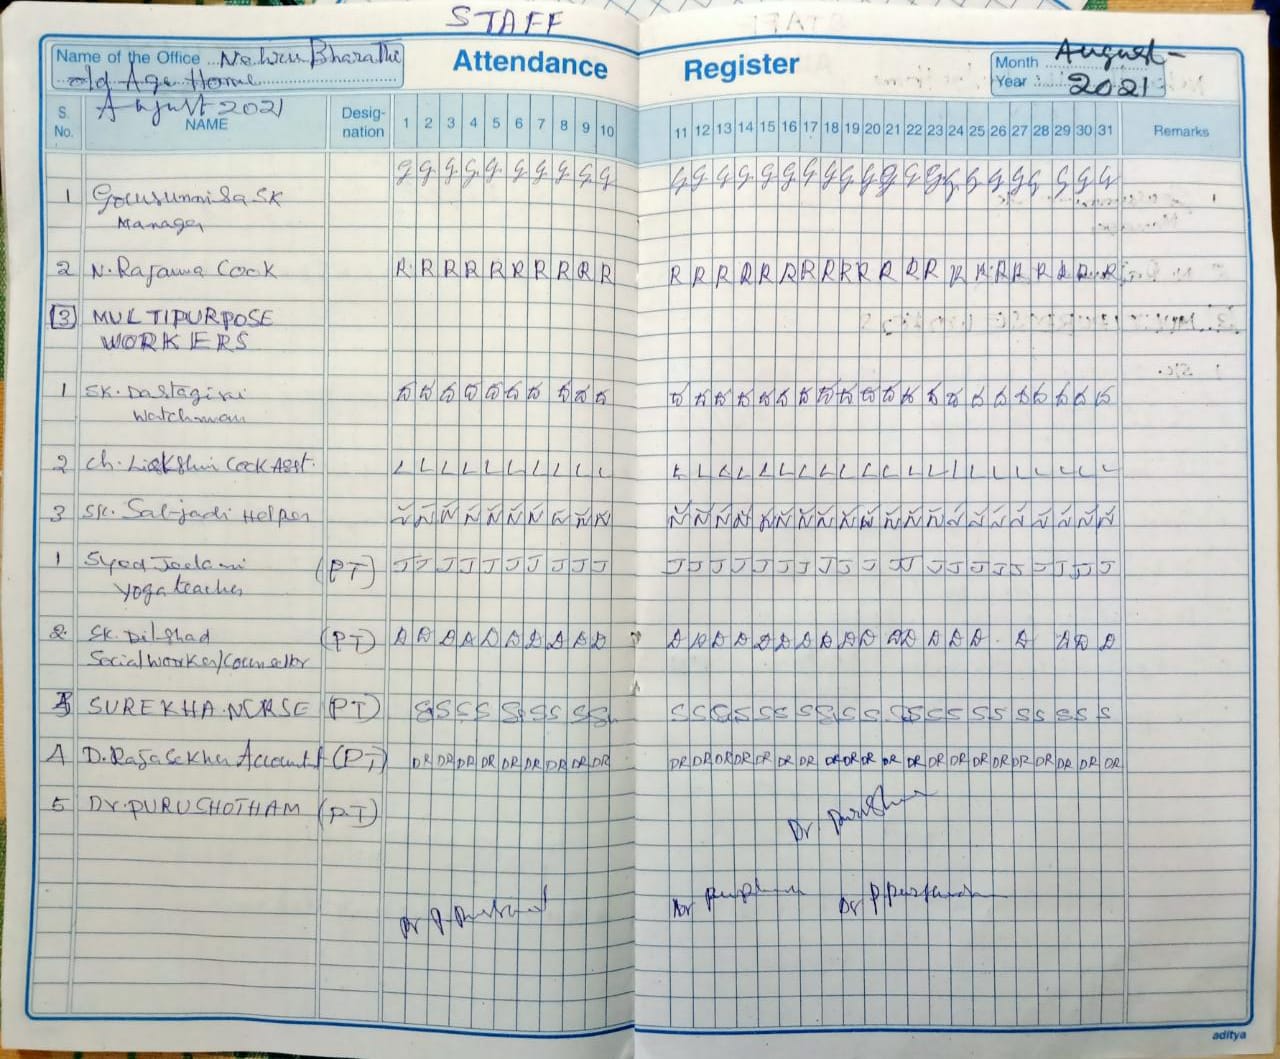 STAFF
Name of the Office ... Nehru Bharathi
old Age Home
Attendance Register
Month August -
Year 2021
August 2021
S. No. NAME Desig-nation 1 2 3 4 5 6 7 8 9 10 11 12 13 14 15 16 17 18 19 20 21 22 23 24 25 26 27 28 29 30 31 Remarks
G G G G G G G G G G G G G G G G G G G G G G G G G G G G G G G
1 Gousunnisa SK
Manager
2 N. Rajamma Cook R R R R R R R R R R R R R R R R R R R R R R R R R R R R R R R
3 MULTIPURPOSE
WORKERS
1 SK. Dastagiri
Watchman
2 Ch. Lakshmi Cook Asst. L L L L L L L L L L L L L L L L L L L L L L L L L L L L L L L
3 SK. Helper
1 Syed Jeelani (PT) J J J J J J J J J J J J J J J J J J J J J J J J J J J J J J J
Yoga teacher
2 SK. Dilshad (PT) D D D D D D D D D D D D D D D D D D D D D D D D D D D D D
Social Worker/Counsellor
SUREKHA NURSE (PT) S S S S S S S S S S S S S S S S S S S S S S S S S S S S S S
4 D. Rajasekhar Accountt (PT) DR DR DR DR DR DR DR DR DR DR DR DR DR DR DR DR DR DR DR DR DR DR DR DR DR DR DR DR DR DR
5 Dr. PURUSHOTHAM (PT)
aditya